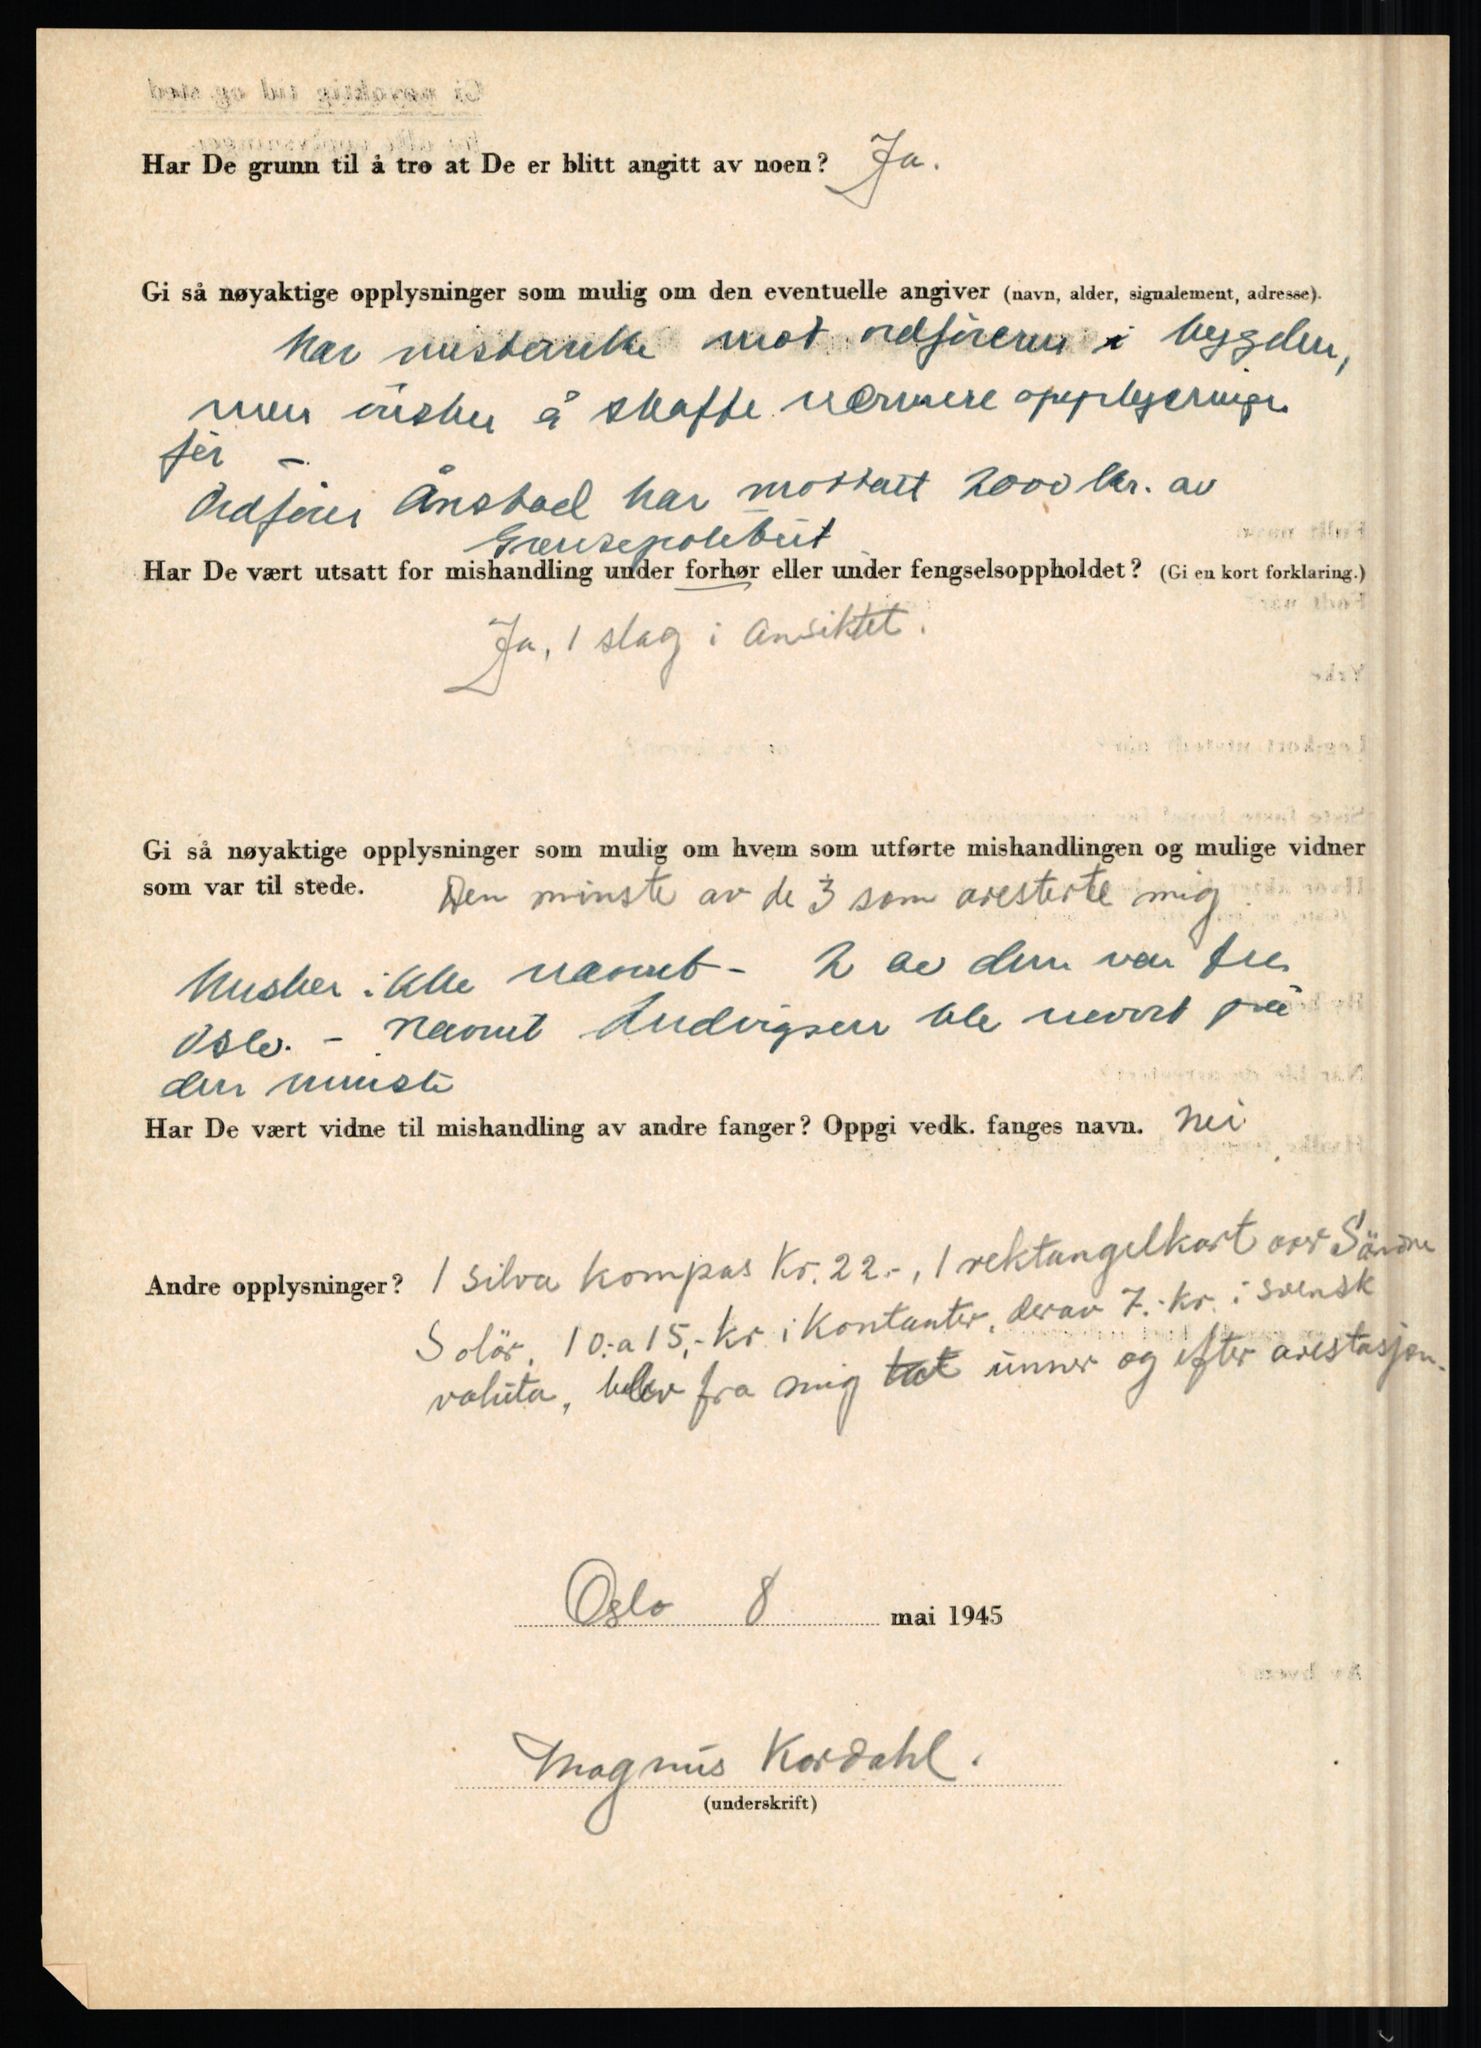 Har De grunn til å tro at De er blitt angitt av noen? Ja.
Gi så nøyaktige opplysninger som mulig om den eventuelle angiver (navn, alder, signalement, adresse).
har mistanke mot ordføreren i bygden,
men önsker å skaffe nærmere opplysninger
før –
Ordfører Ånstad har mottatt 2000 kr. av
Grensepolitiet
Har De vært utsatt for mishandling under forhør eller under fengselsoppholdet? (Gi en kort forklaring.)
Ja, 1 slag i Ansiktet.
Gi så nøyaktige opplysninger som mulig om hvem som utførte mishandlingen og mulige vidner
som var til stede. Den minste av de 3 som aresterte mig.
husker ikke navnet – 2 av dem var fra
Oslo. – Navnet Ludvigsen ble nevnt på
den minste
Har De vært vidne til mishandling av andre fanger? Oppgi vedk. fanges navn. nei
Andre opplysninger? 1 silva kompas Kr. 22.-, 1 rektangelkart over Söndre
Solör, 10.- a 15,- kr i Kontanter, derav 7.- kr. i svensk
valuta, blev fra mig tat unner og efter arestasjon.
Oslo 8 mai 1945
Magnus Kordahl.
(underskrift)